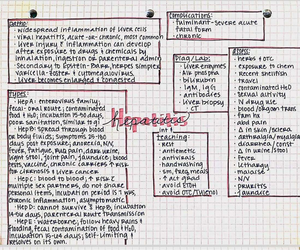 Patho:
- widespread inflammation of liver cells
- viral hepatitis, acute or chronic, most common
- liver injury & inflammation can develop
after exposure to drugs & chemicals by
inhalation, ingestion or parenteral admin
- Secondary to Epstein-Barr, herpes simplex
varicella-zoster + cytomegalovirus
- Liver becomes enlarged + congested
Complications:
- fulminant - severe acute
fatal form
- chronic
Diag/Labs:
- liver enzymes
- alk phos
- bilirubin
- IgM, IgG
- antibodies
- liver biopsy
- CT
- herbs + OTC
- exposure to chem
- recent
- travel
- contaminated H2O
- sexual activity
- IV drug use
- blood/organ trans
- fam hx
- abd pain
- Δ in skin/sclera
- arthralgia/myalgia
- diarrhea/const
- Δ in urine/stool
- fever
- lethargy
- malaise
- N/V
- pruritis
- jaundice
Hepatitis
Types:
- Hep A: enterovirus family
fecal-oral route, contaminated
food + H2O, incubation 15-50 days
poor sanitation, similar to
- Hep B: spread through blood
or body fluids,
days post exposure, anorexia, N/V,
fever, fatigue, RUQ pain, dark urine,
light stool, joint pain, jaundice; blood
tests, vaccine, chronic carriers ↑ risk
for cirrhosis & liver cancer
- Hep C: blood to blood, ↑ risk
multiple sex partners, do not share
personal items, incubation period is 7 wks,
chronic inflammation, asymptomatic
- Hep D: cannot survive s̄ Hep B, incubation
14-56 days, parenteral route transmission
- Hep E: waterborne, follow heavy rains &
flooding, fecal contamination of food + H2O,
incubation 15-64 days, self-limiting &
resolves on its own.
teaching:
- rest
- antiemetic
- antivirals
- handwashing
- sm, freq meals
- ↑ act
- avoid EtOH
- avoid OTC/Tylenol